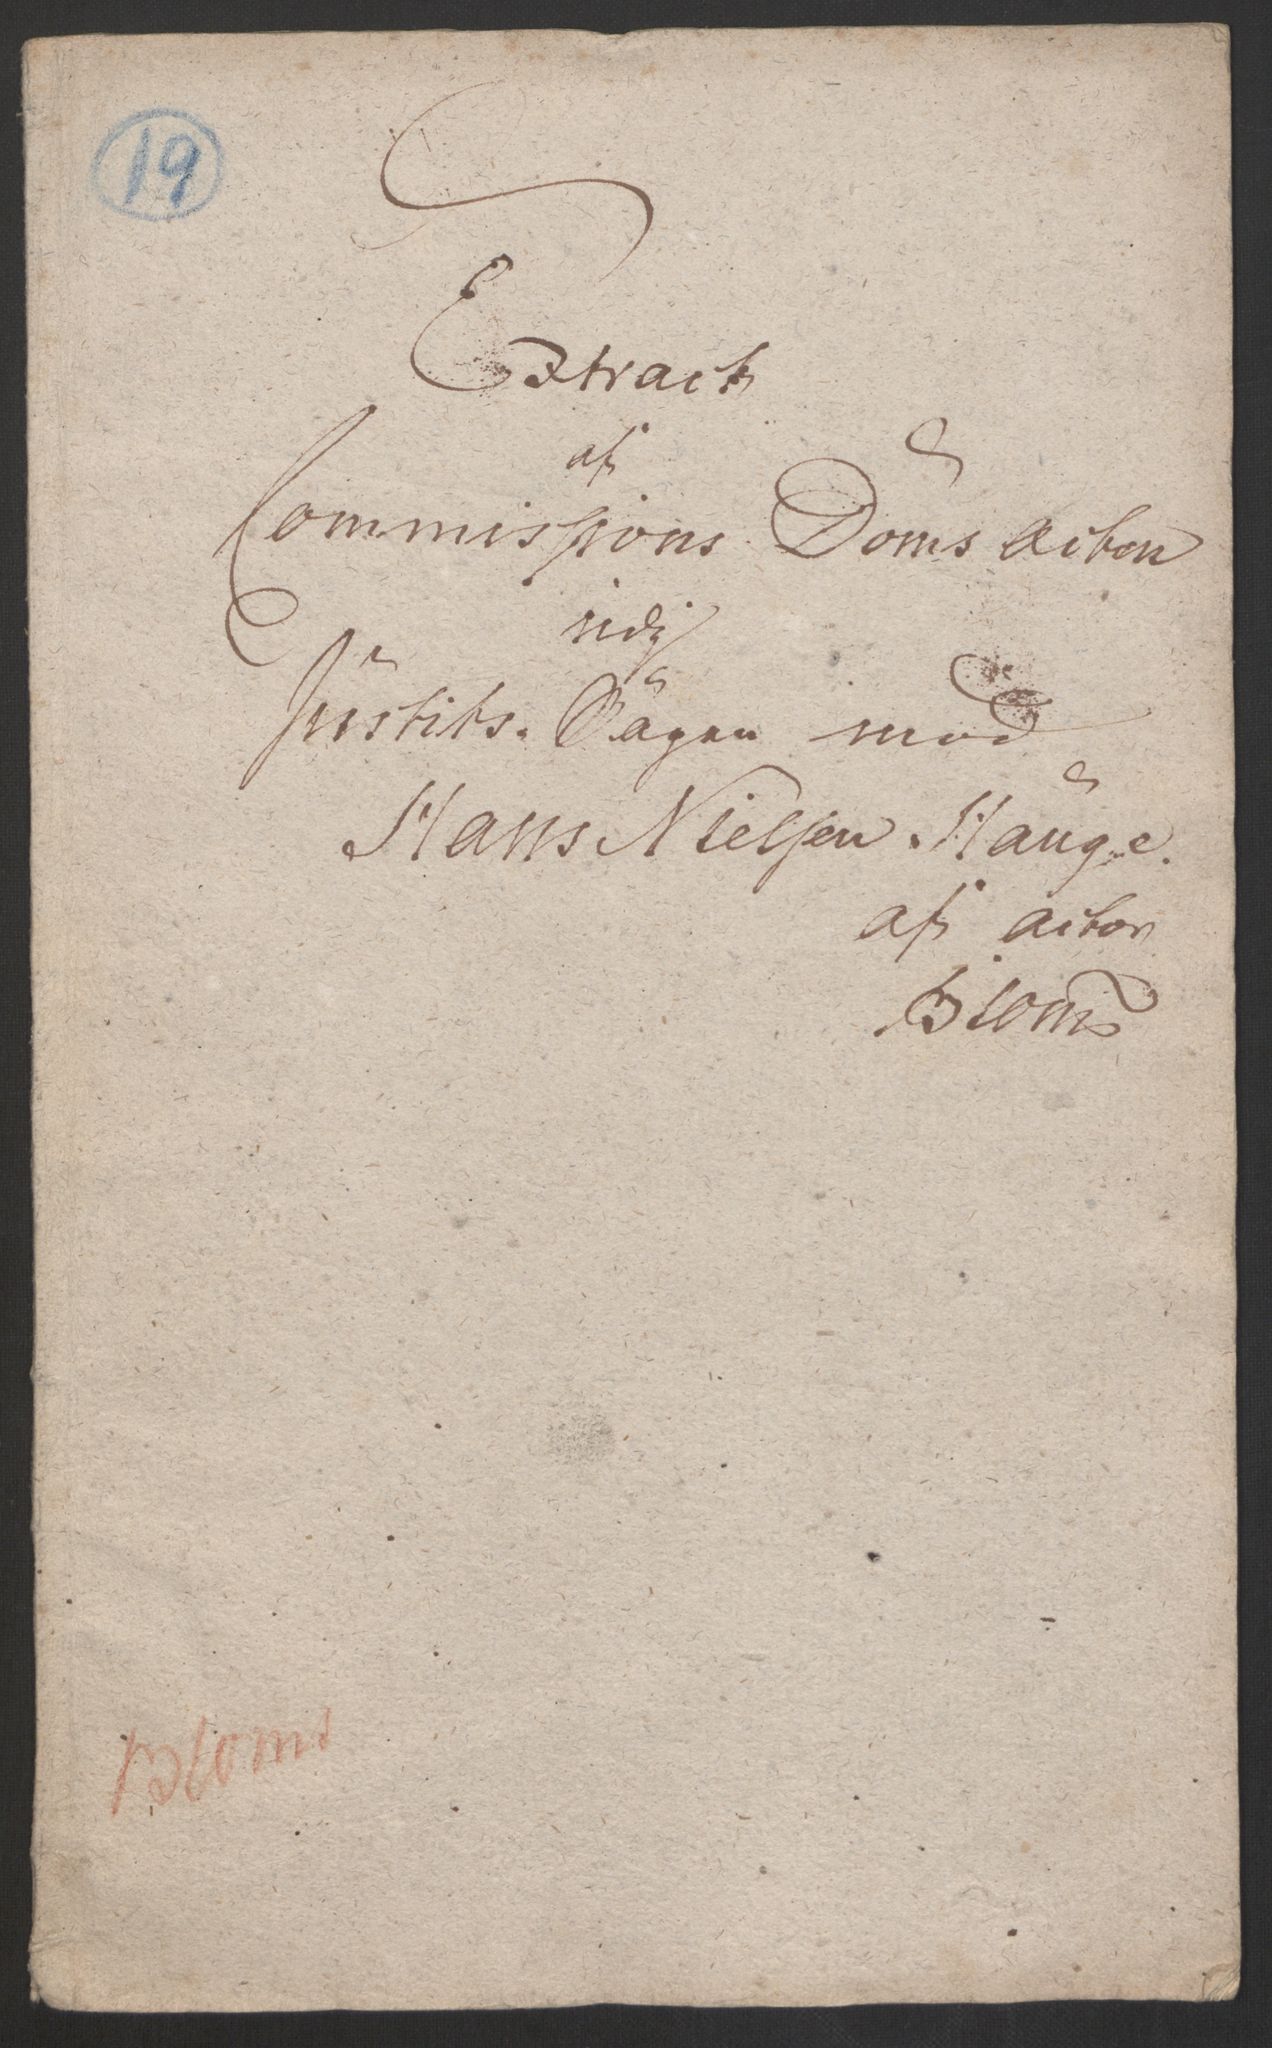 19
Extract
af
Commissions Doms acten
udi
Justits. Sagen mod
Hans Nielsen Hauge.
af actor
Blom
Bloms